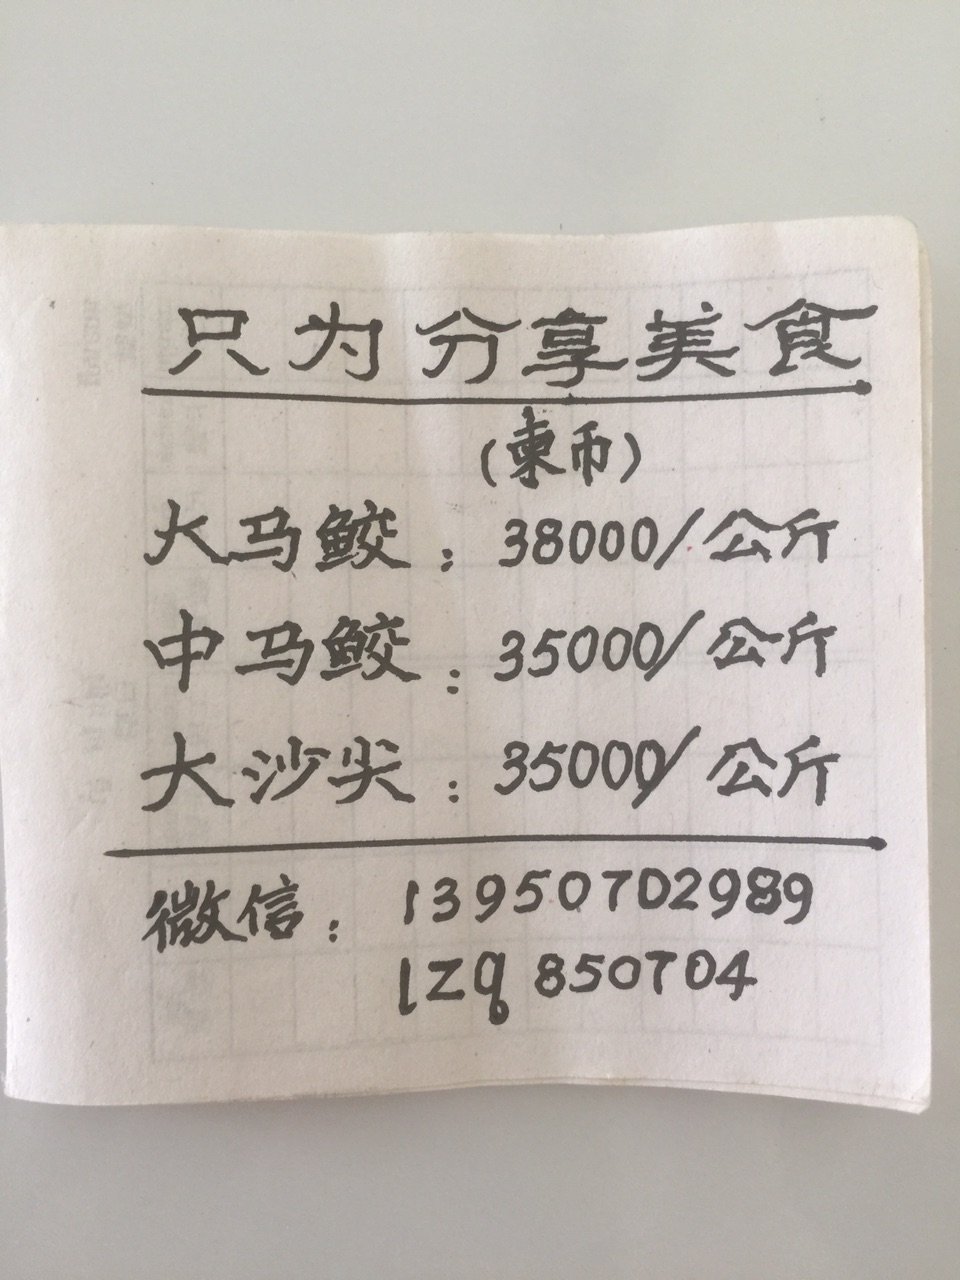 只为分享美食
(柬币)
大马鲛：38000/公斤
中马鲛：35000/公斤
大沙尖：35000/公斤
微信：13950702989
lzq850704